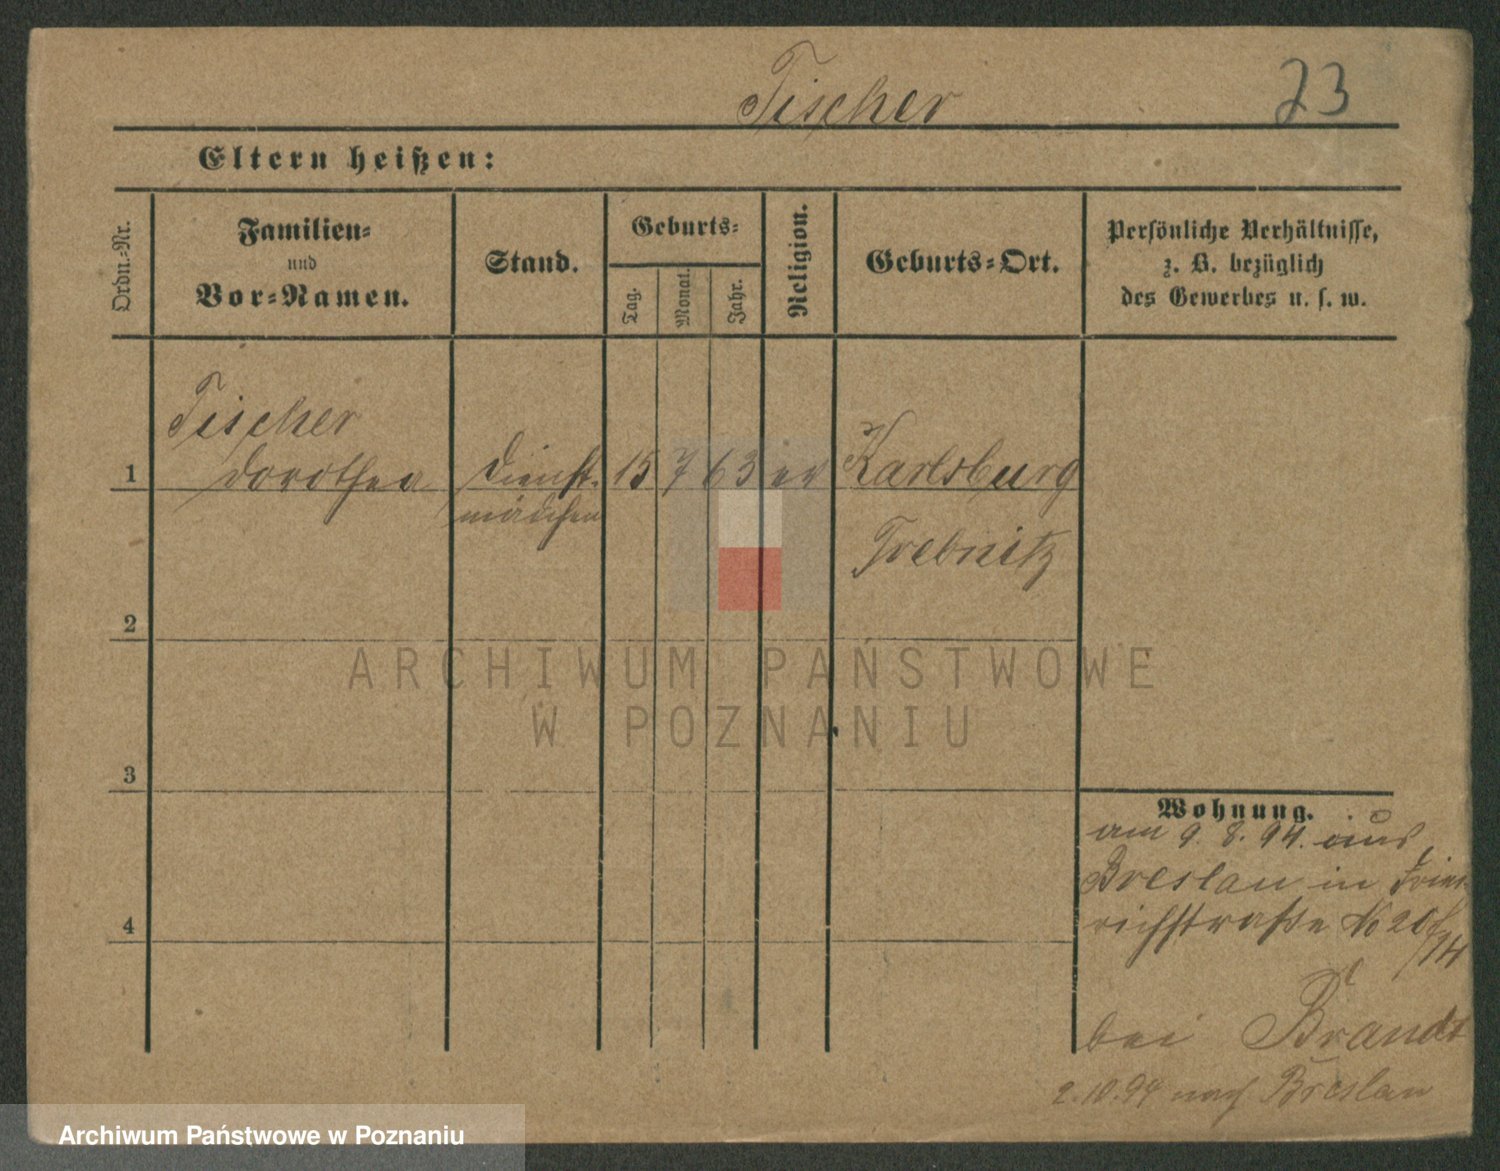 Fischer 23
Eltern heißen:
Ordn.-Nr.
Familien-
und
Vor-Namen.
Stand.
Geburts-
Tag.
Monat.
Jahr.
Religion.
Geburts-Ort.
Persönliche Verhältnisse,
z. B. bezüglich
des Gewerbes u. s. w.
Fischer
1 Dorothea Dienst- 15 7 63 ev Karlsburg
mädchen
Trebnitz
2
ARCHIWUM PAŃSTWOWE
W POZNANIU
3
Wohnung.
am 9. 8. 94. aus
Breslau in Fried-
richstraße No 20
bei Brandt
2.10.94 nach Breslau
4
Archiwum Państwowe w Poznaniu